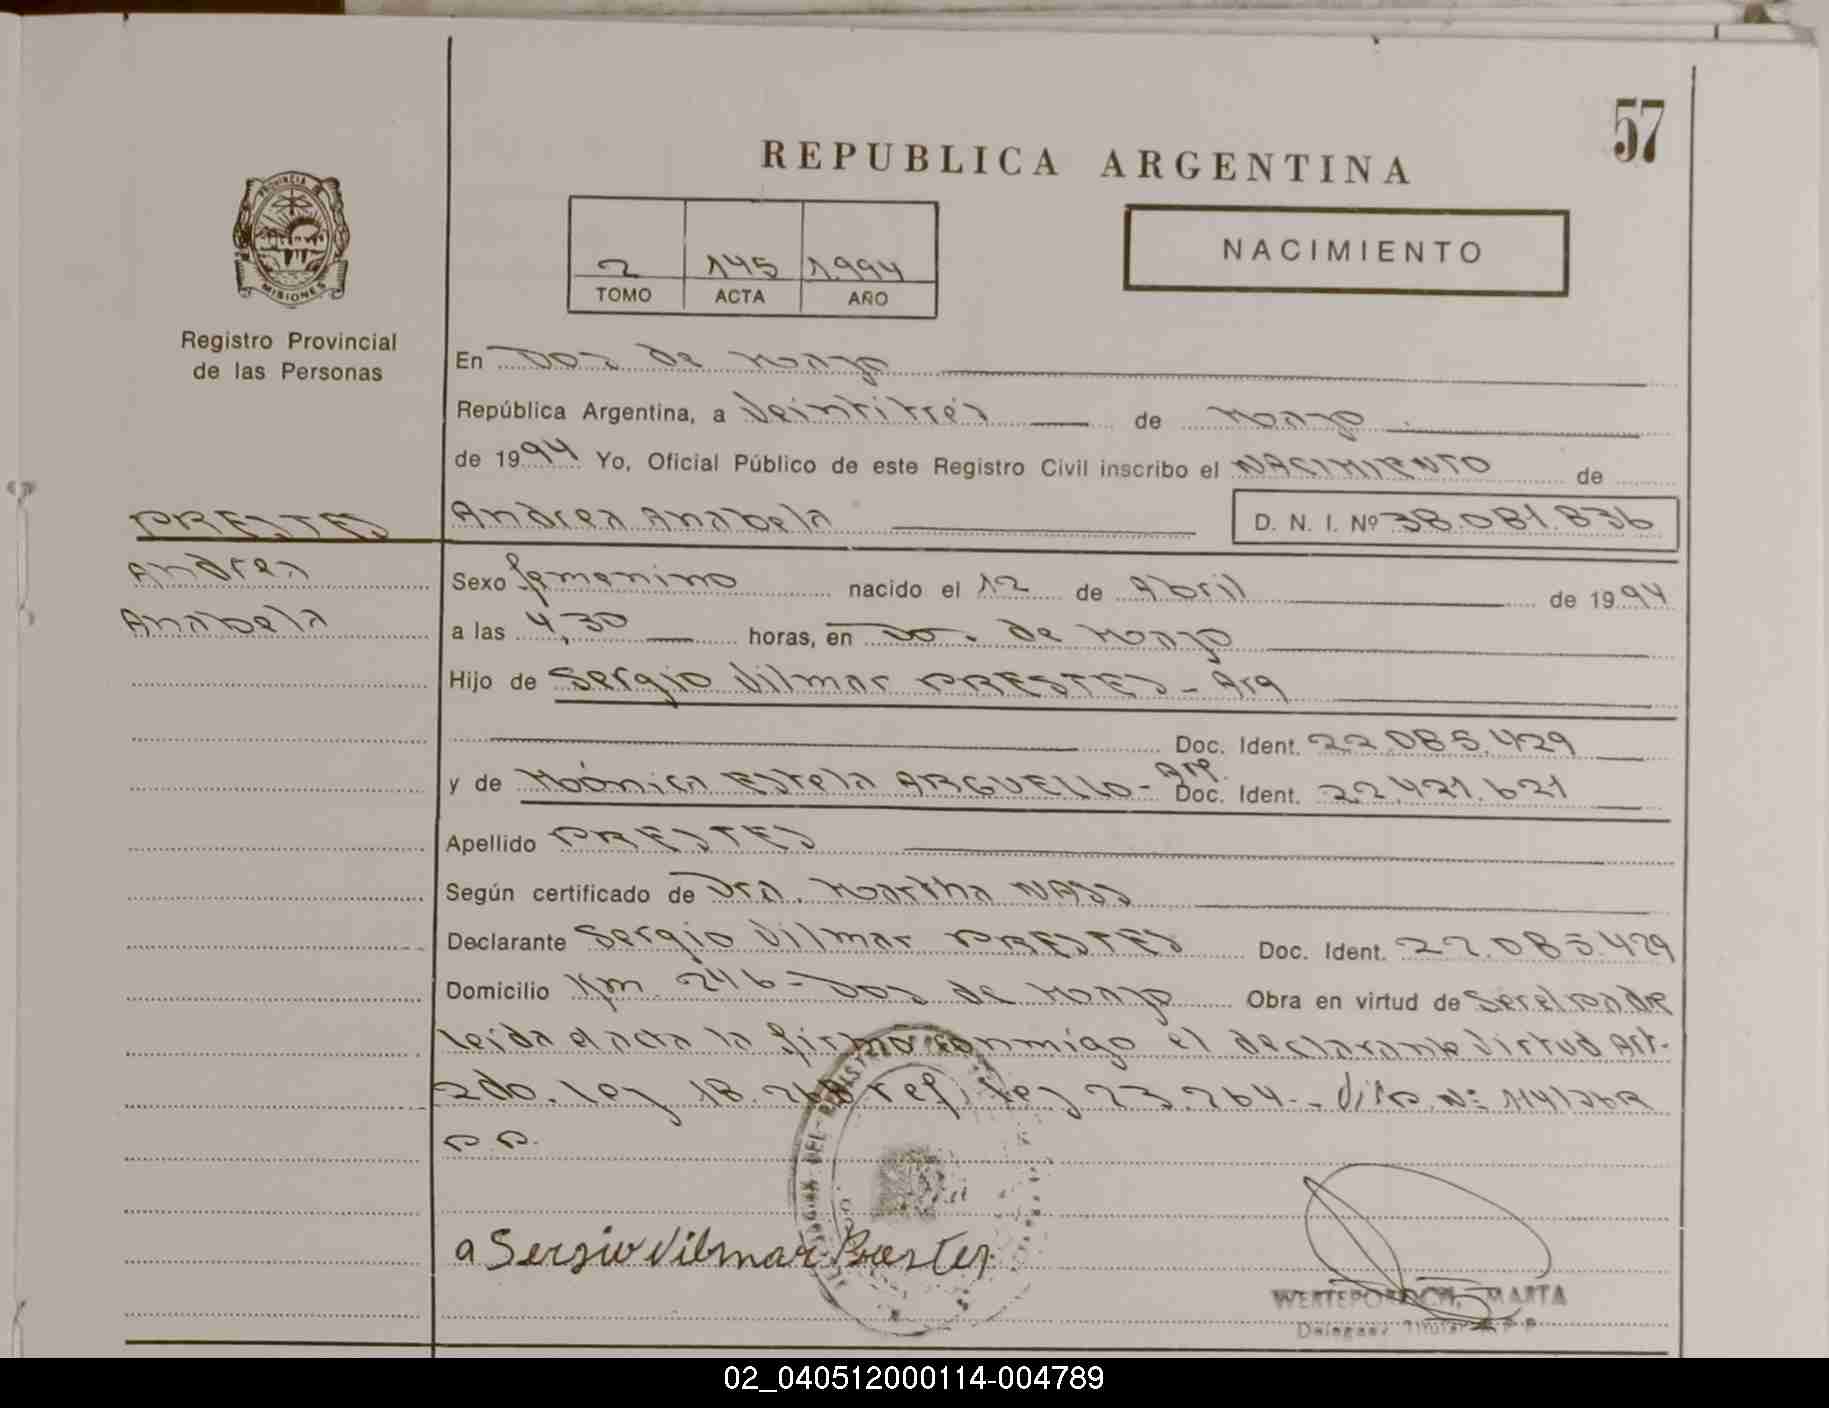 57
REPUBLICA ARGENTINA
PROVINCIA DE
MISIONES
Registro Provincial
de las Personas
2 145 1.994
TOMO ACTA AÑO
NACIMIENTO
En Dos de Mayo
República Argentina, a Veintitrés de Mayo
de 1994 Yo, Oficial Público de este Registro Civil inscribo el NACIMIENTO de
PRESTES
Andrea
Anabela
Andrea Anabela D. N. I. Nº 38.081.836
Sexo femenino nacido el 12 de Abril de 1994
a las 4,30 horas, en Dos de Mayo
Hijo de Sergio Vilmar PRESTES - Arg
Doc. Ident. 22.085.429
y de Moónica Estela ARGUELLO- Arg. Doc. Ident. 22.421.621
Apellido PRESTES
Según certificado de Dra. Martha NASS
Declarante Sergio Vilmar PRESTES Doc. Ident. 22.085.429
Domicilio Km. 246 - Dos de Mayo Obra en virtud de Ser el padre
leída el acta la firma conmigo el declarante Virtud Art-
2do. ley 18.248 ley 23.264.- N:
P.P.
a Sergio Vilmar Prestes
MARTA
Delegada Titular R.P.P.
02_040512000114-004789